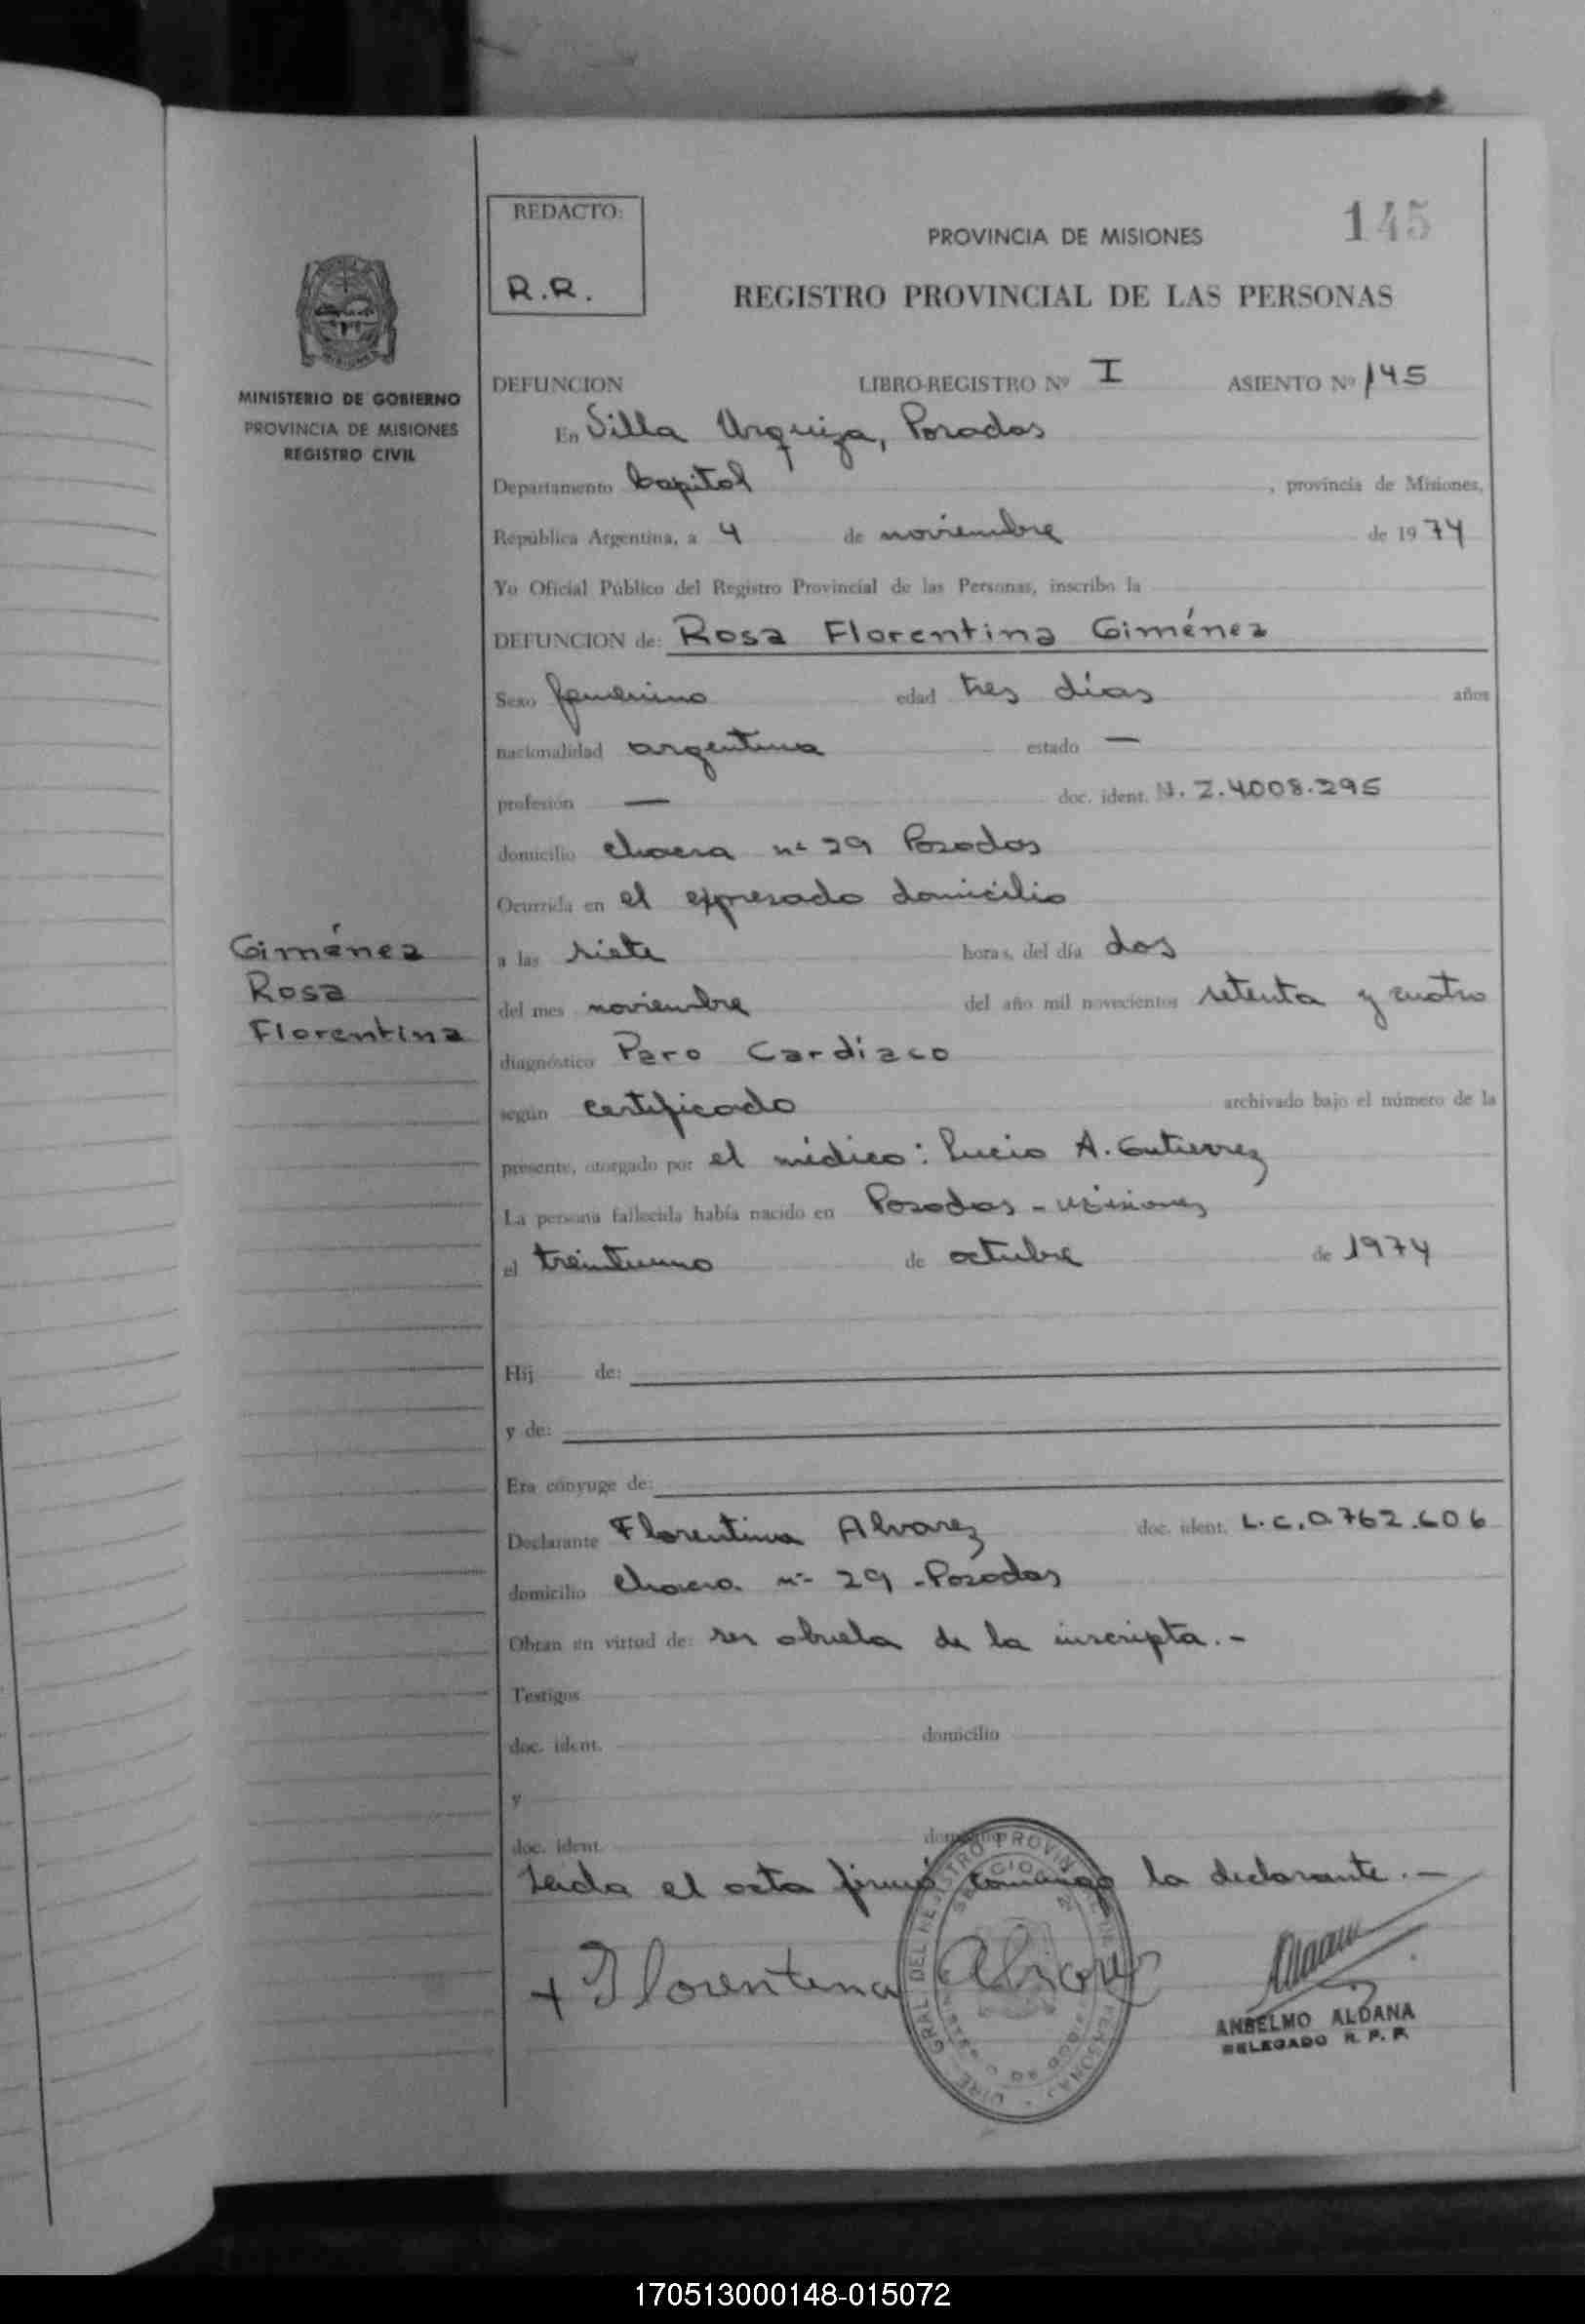 REDACTO:
R.R.
145
PROVINCIA DE MISIONES
REGISTRO PROVINCIAL DE LAS PERSONAS
MINISTERIO DE GOBIERNO
PROVINCIA DE MISIONES
REGISTRO CIVIL
DEFUNCION LIBRO-REGISTRO Nº I ASIENTO Nº 145
En Villa Urquiza, Posadas
Departamento Capital, provincia de Misiones,
República Argentina, a 4 de noviembre de 1974
Yo Oficial Público del Registro Provincial de las Personas, inscribo la
DEFUNCION de: Rosa Florentina Giménez
Sexo femenino edad tres días años
nacionalidad argentina estado —
profesión — doc. ident. N. 24.008.295
domicilio chacra nº 29 Posadas
Ocurrida en el expresado domicilio
a las siete horas, del día dos
del mes noviembre del año mil novecientos setenta y cuatro
diagnóstico Paro Cardiaco
según certificado archivado bajo el número de la
presente, otorgado por el médico: Lucio A. Gutierrez
La persona fallecida había nacido en Posadas - Misiones
el treintiuno de octubre de 1974
Giménez
Rosa
Florentina
Hij de:
y de:
Era cónyuge de:
Declarante Florentina Alvarez doc. ident. L.C.0.762.606
domicilio Chacra nº 29 - Posadas
Obran en virtud de: ser abuela de la inscripta.-
Testigos
doc. ident. domicilio
y
doc. ident. domicilio
Leida el acta firmó conmigo la declarante.—
+ Florentina Alvarez
ANSELMO ALDANA
DELEGADO R. P. P.
170513000148-015072